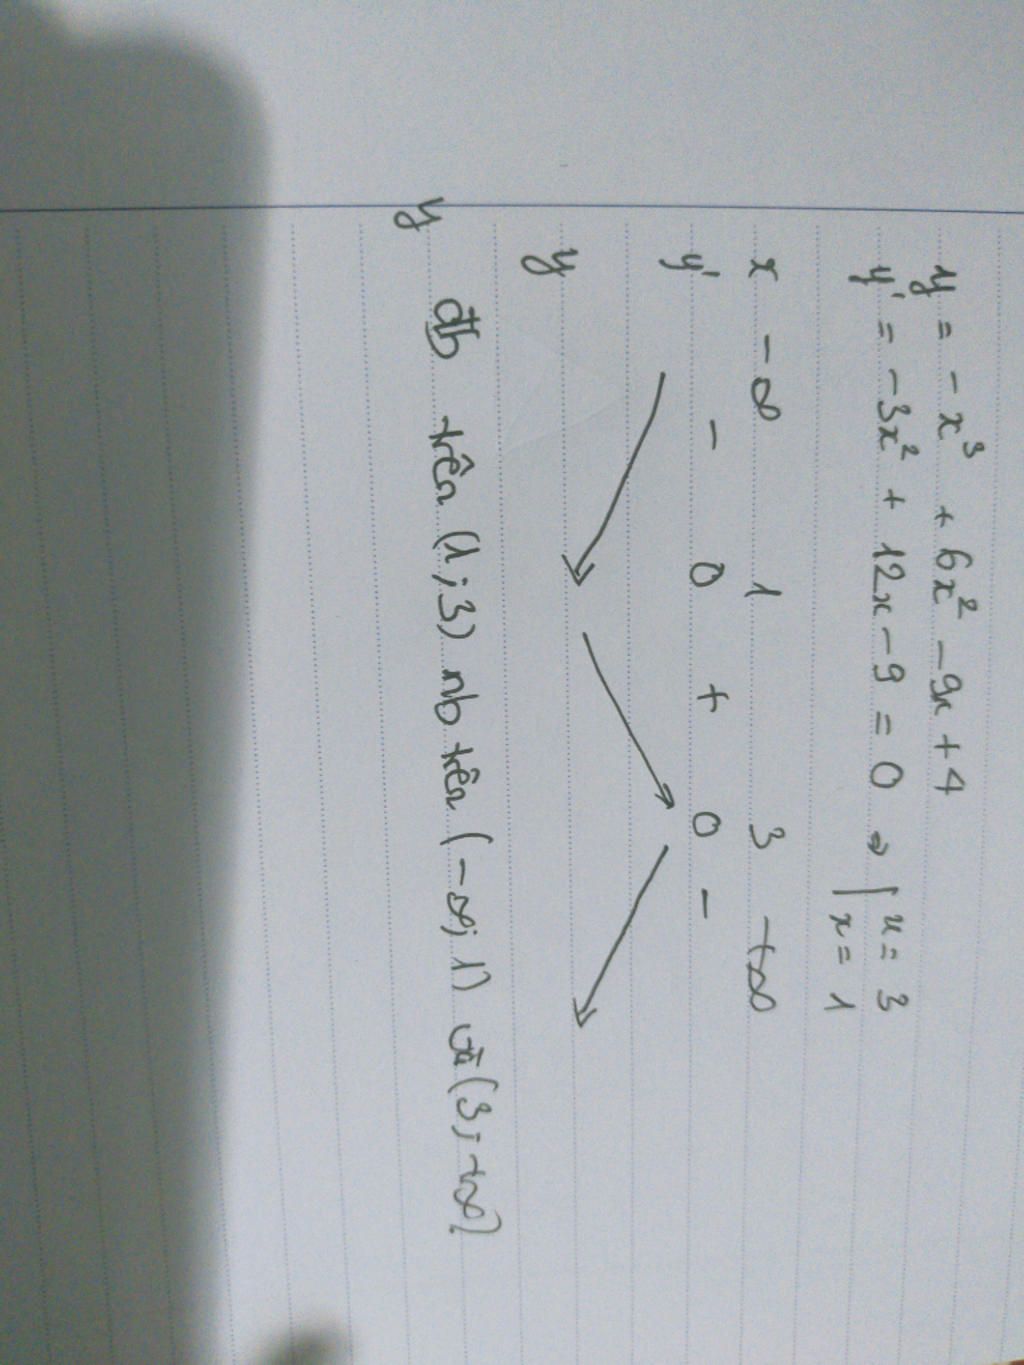 y = - x³ + 6x² - 9x + 4
y' = -3x² + 12x - 9 = 0 ⇒ [ x = 3
x = 1
x -∞ 1 3 +∞
y' - 0 + 0 -
y
y đb trên (1; 3) nb trên (-∞; 1) và (3; +∞)